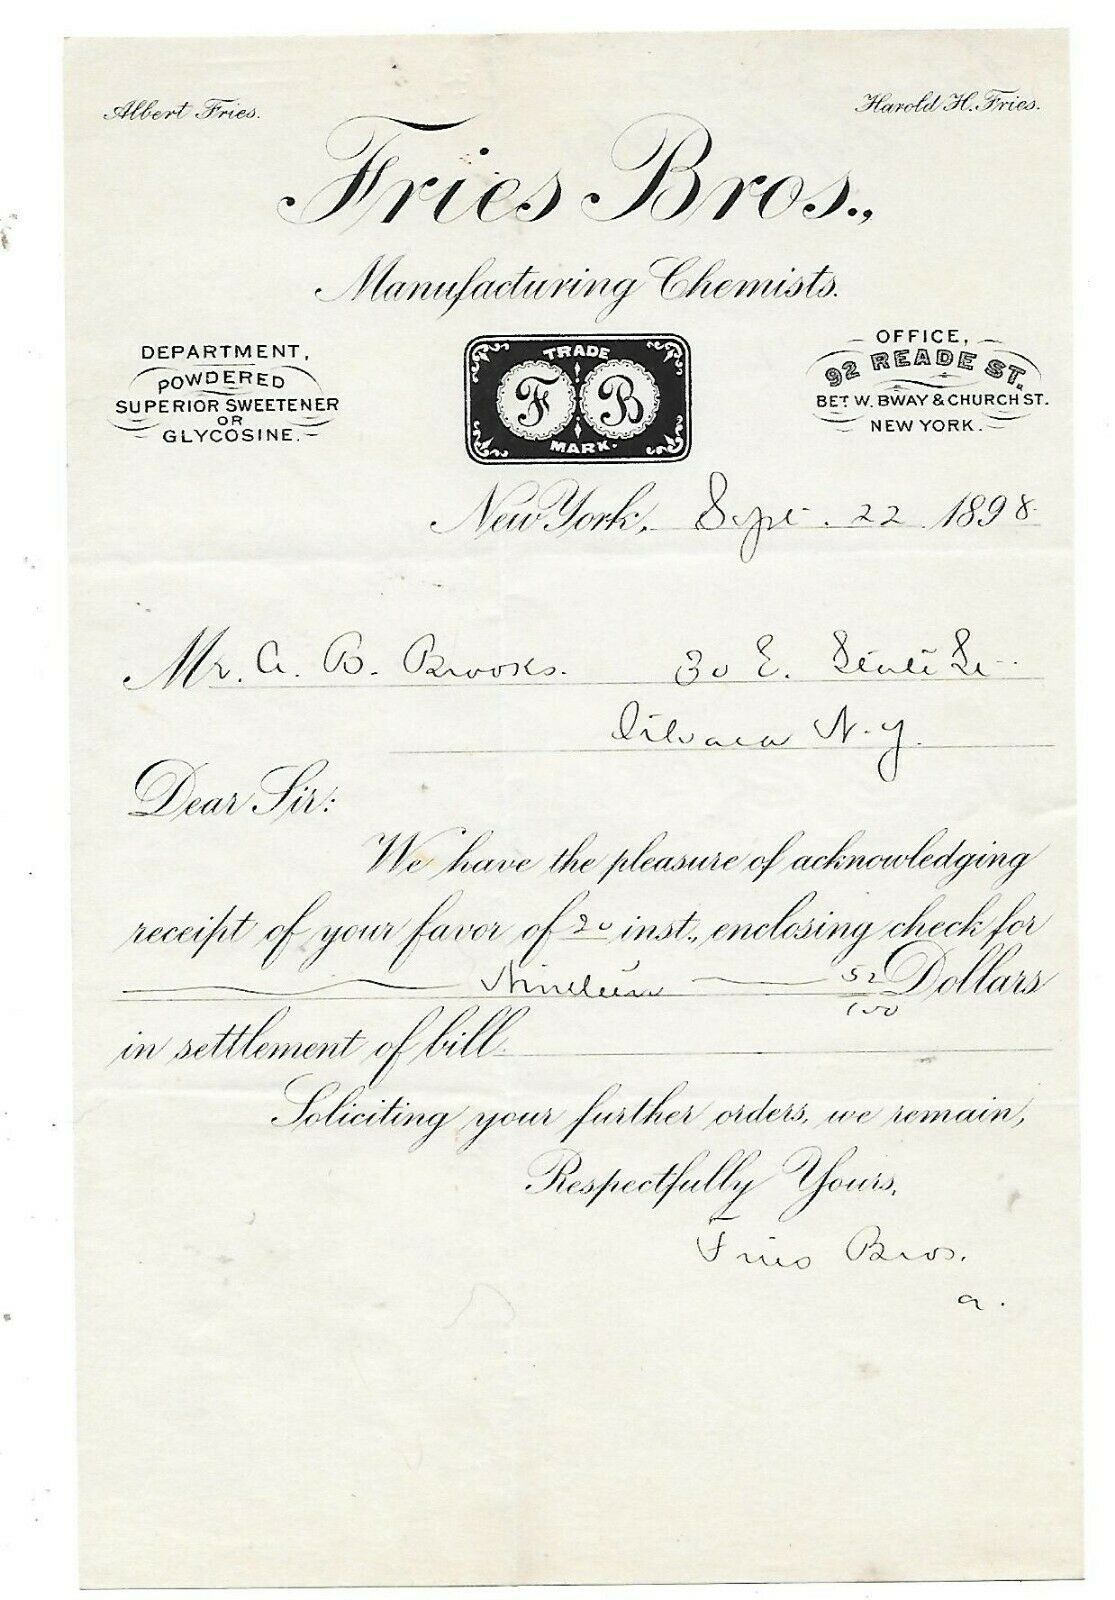 Albert Fries.
Harold H. Fries.
Fries Bros.,
Manufacturing Chemists.
DEPARTMENT,
POWDERED
SUPERIOR SWEETENER
OR
GLYCOSINE.
TRADE
F B
MARK.
OFFICE,
92 READE ST.
BET. W. BWAY & CHURCH ST.
NEW YORK.
New York, Sept. 22 1898.
Mr. A. B. Brooks. 30 E. State St.
Ithaca N.Y.
Dear Sir:
We have the pleasure of acknowledging
receipt of your favor of 20 inst., enclosing check for
Nineteen 52/100 Dollars
in settlement of bill.
Soliciting your further orders, we remain,
Respectfully Yours,
Fries Bros.
a.